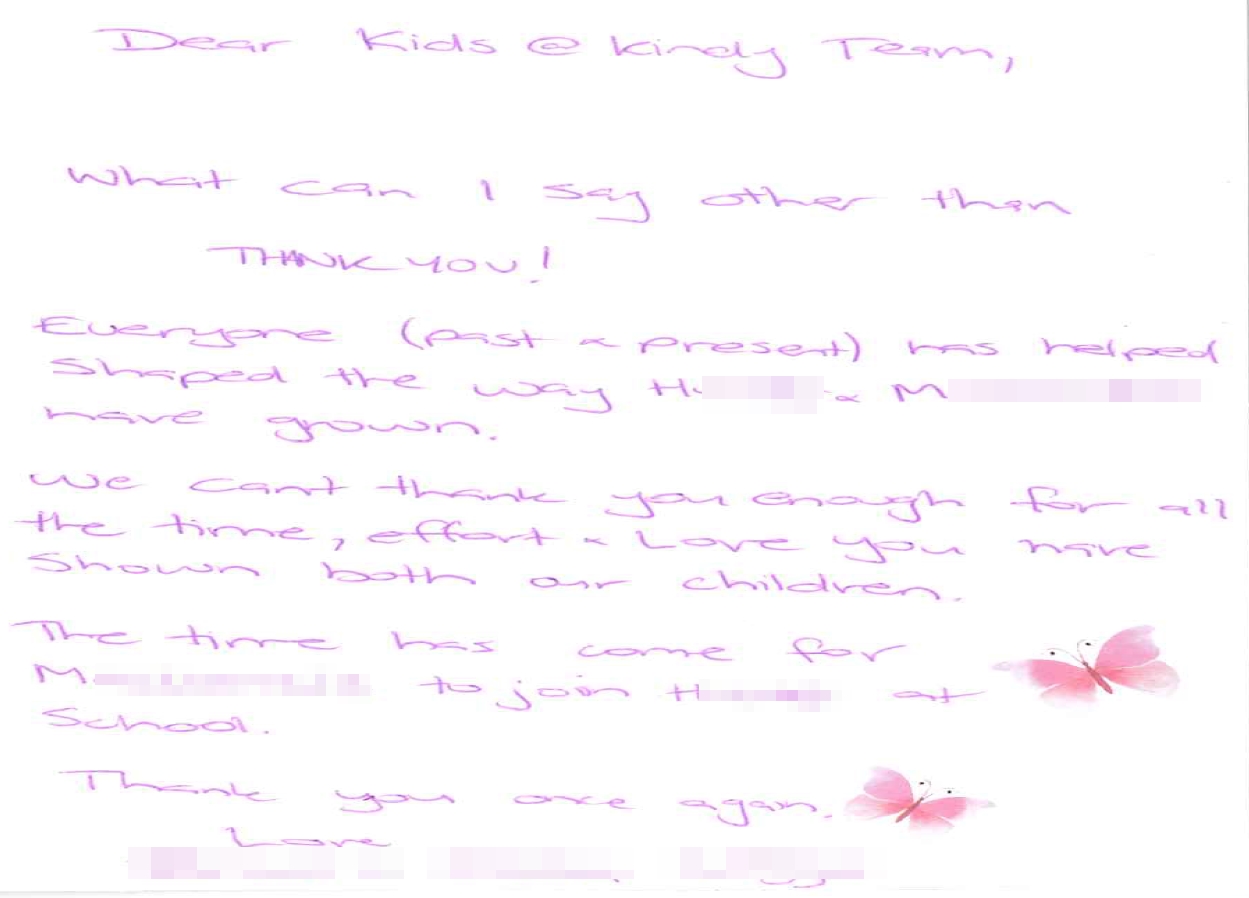 Dear Kids @ Kindy Team,
What can I say other than
THANK YOU!
Everyone (past & present) has helped
Shaped the way H & M
have grown.
We can't thank you enough for all
the time, effort & Love you have
Shown both our children.
The time has come for
M to join H at
School.
Thank you once again.
Love